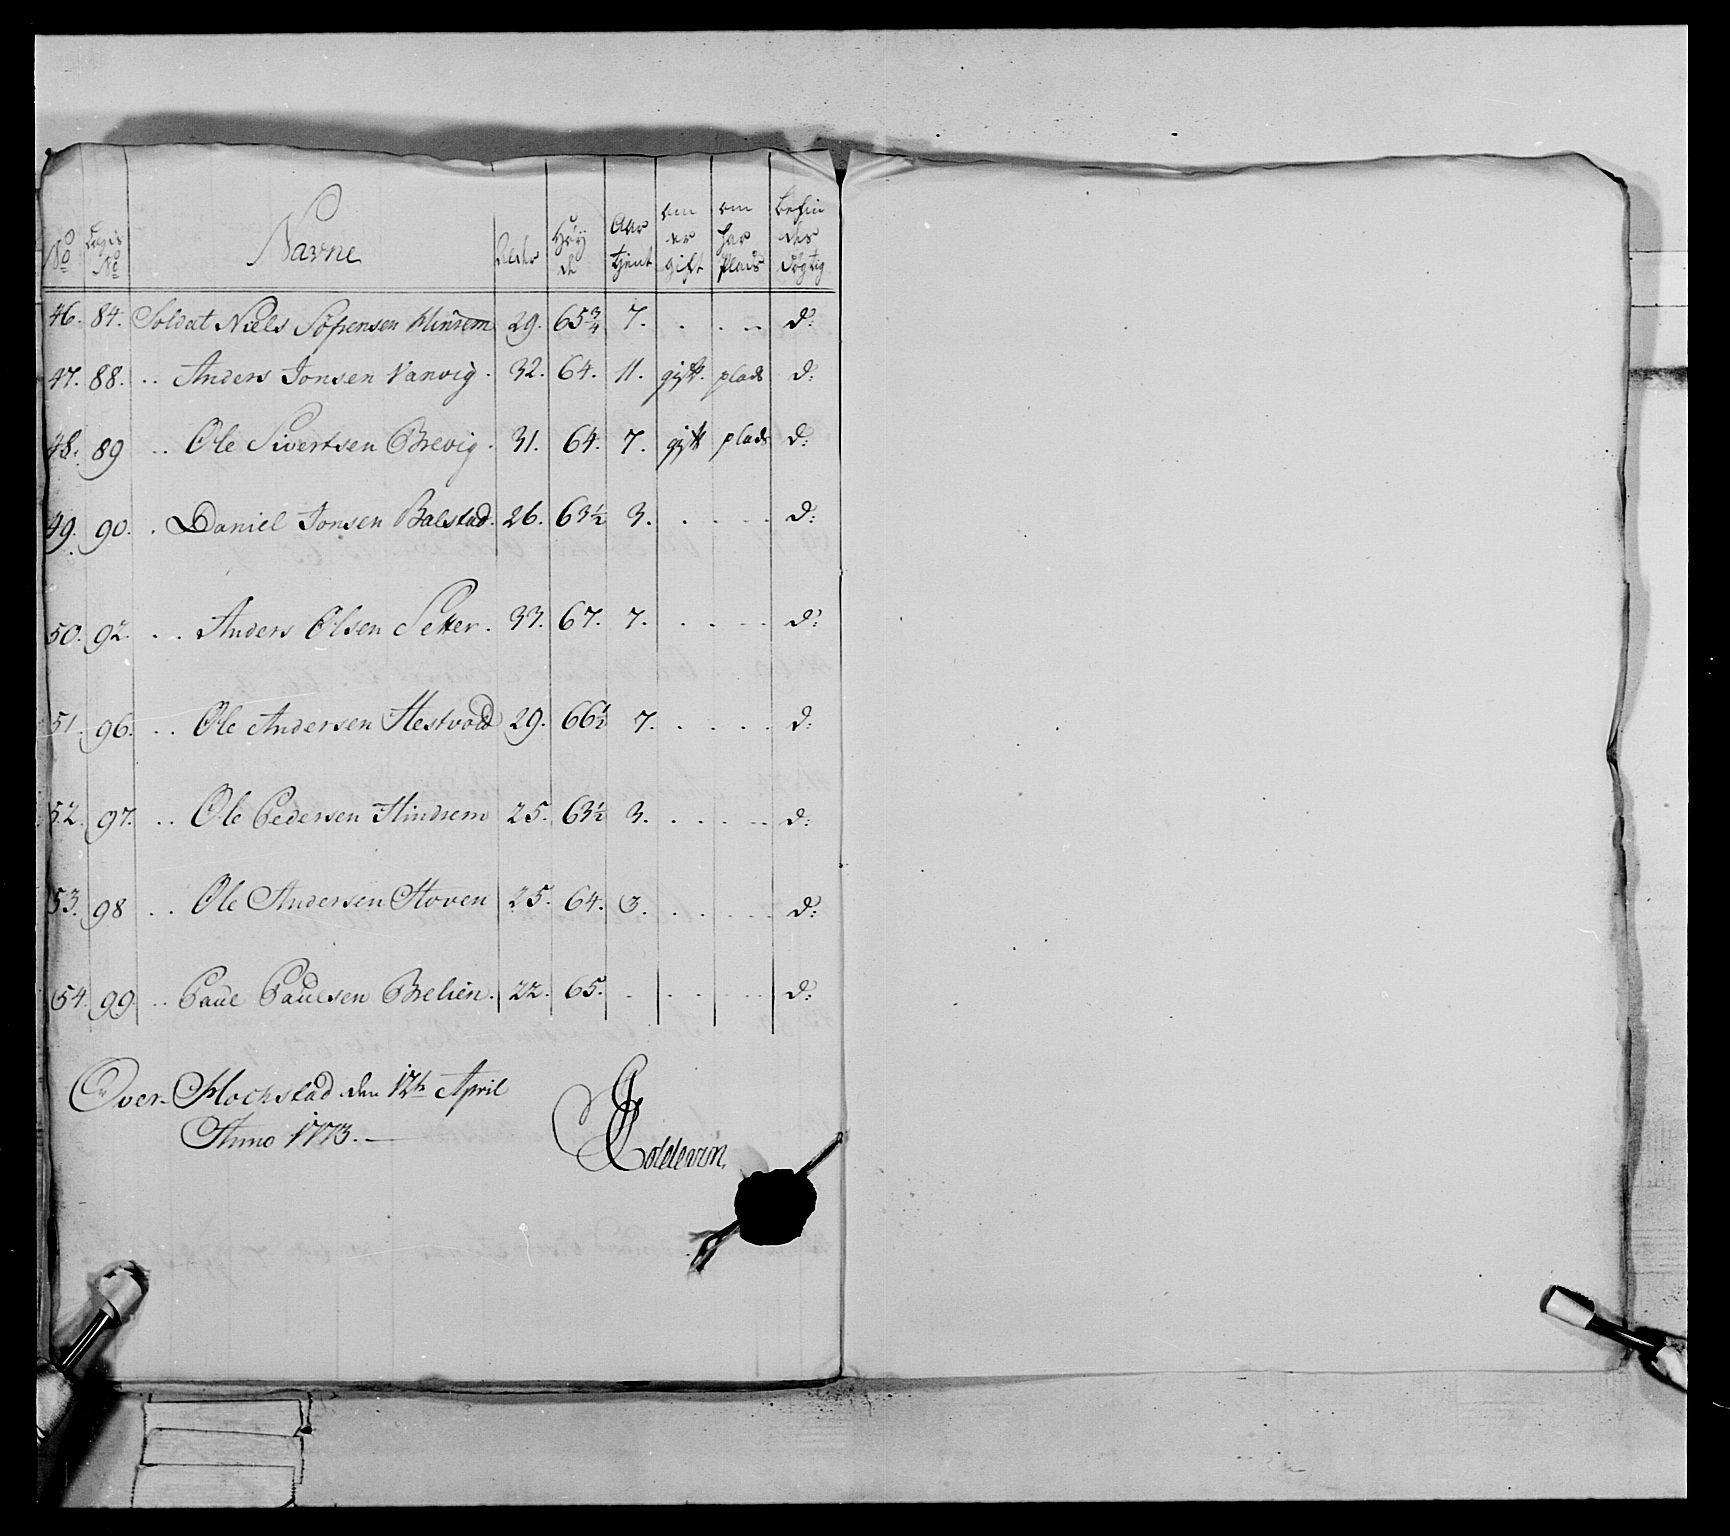 No Logis No Navne Alder Høyde Aar tjent om er gift om har Plads befindes dygtig
46. 84. Soldat Niels Sørensen Hindrem 29. 65 3/4 7. . . . d:
47. 88. .. Anders Jonsen Vanvig. 32. 64. 11. gift. plads d:
48. 89 .. Ole Sivertsen Brevig. 31. 64. 7. gift plads d:
49. 90. . Daniel Jonsen Balstad. 26. 63 1/2 3. . . . . d:
50. 92. .. Anders Olsen Setter. 33. 67. 7. . . . . d:
51. 96. .. Ole Andersen Hestvold 29. 66 1/2 7. . . . . d:
52. 97. .. Ole Pedersen Hindrem 25. 63 1/2 3. . . . . d:
53. 98 .. Ole Andersen Hoven 25. 64. 3. . . . . d:
54. 99. .. Paul Paulsen Brelien. 22. 65. . . . . d:
Over- Mochstad den 12te April
Anno 1773. —
Coldevin.